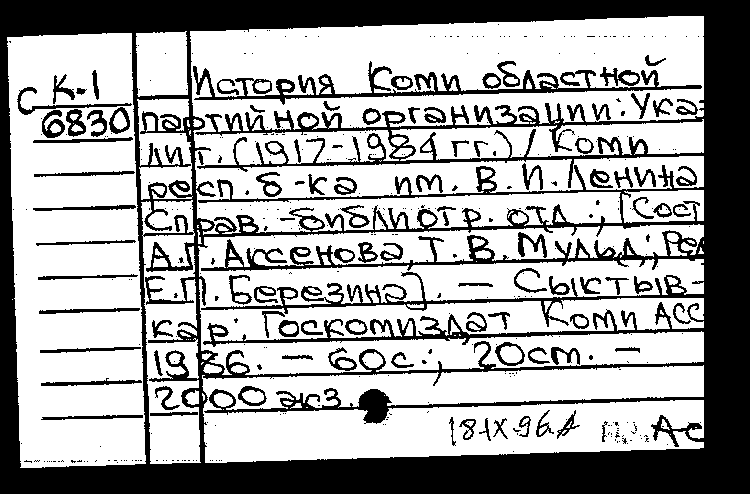 С К-1
6830
История Коми областной
партийной организации: Указ
лит. (1917-1984 гг.) / Коми
респ. б-ка им. В.И. Ленина
Справ.-библиогр. отд.; [Сост
А.Г. Аксенова, Т.В. Мульд.; Ред
Е.П. Березина]. — Сыктыв-
кар: Госкомиздат Коми АСС
1986. — 60с.; 20см. —
2000 экз.
18-IX-96
Ас